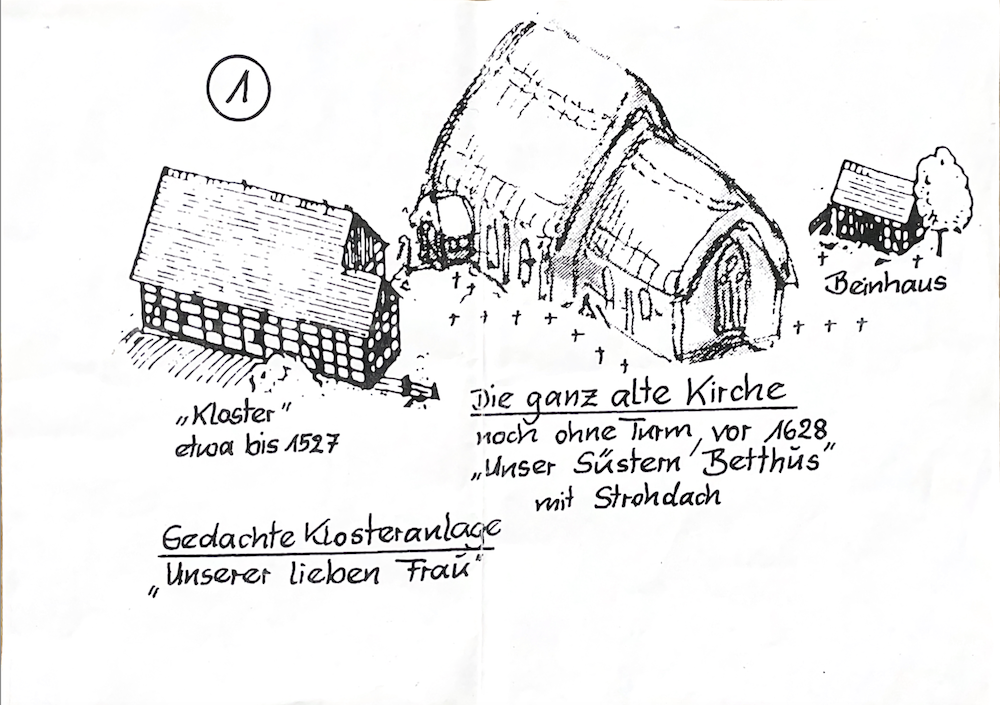 1
Beinhaus
„Kloster"
etwa bis 1527
Die ganz alte Kirche
noch ohne Turm, vor 1628
„Unser Süstern Betthūs"
mit Strohdach
Gedachte Klosteranlage
„Unserer lieben Fraŭ"